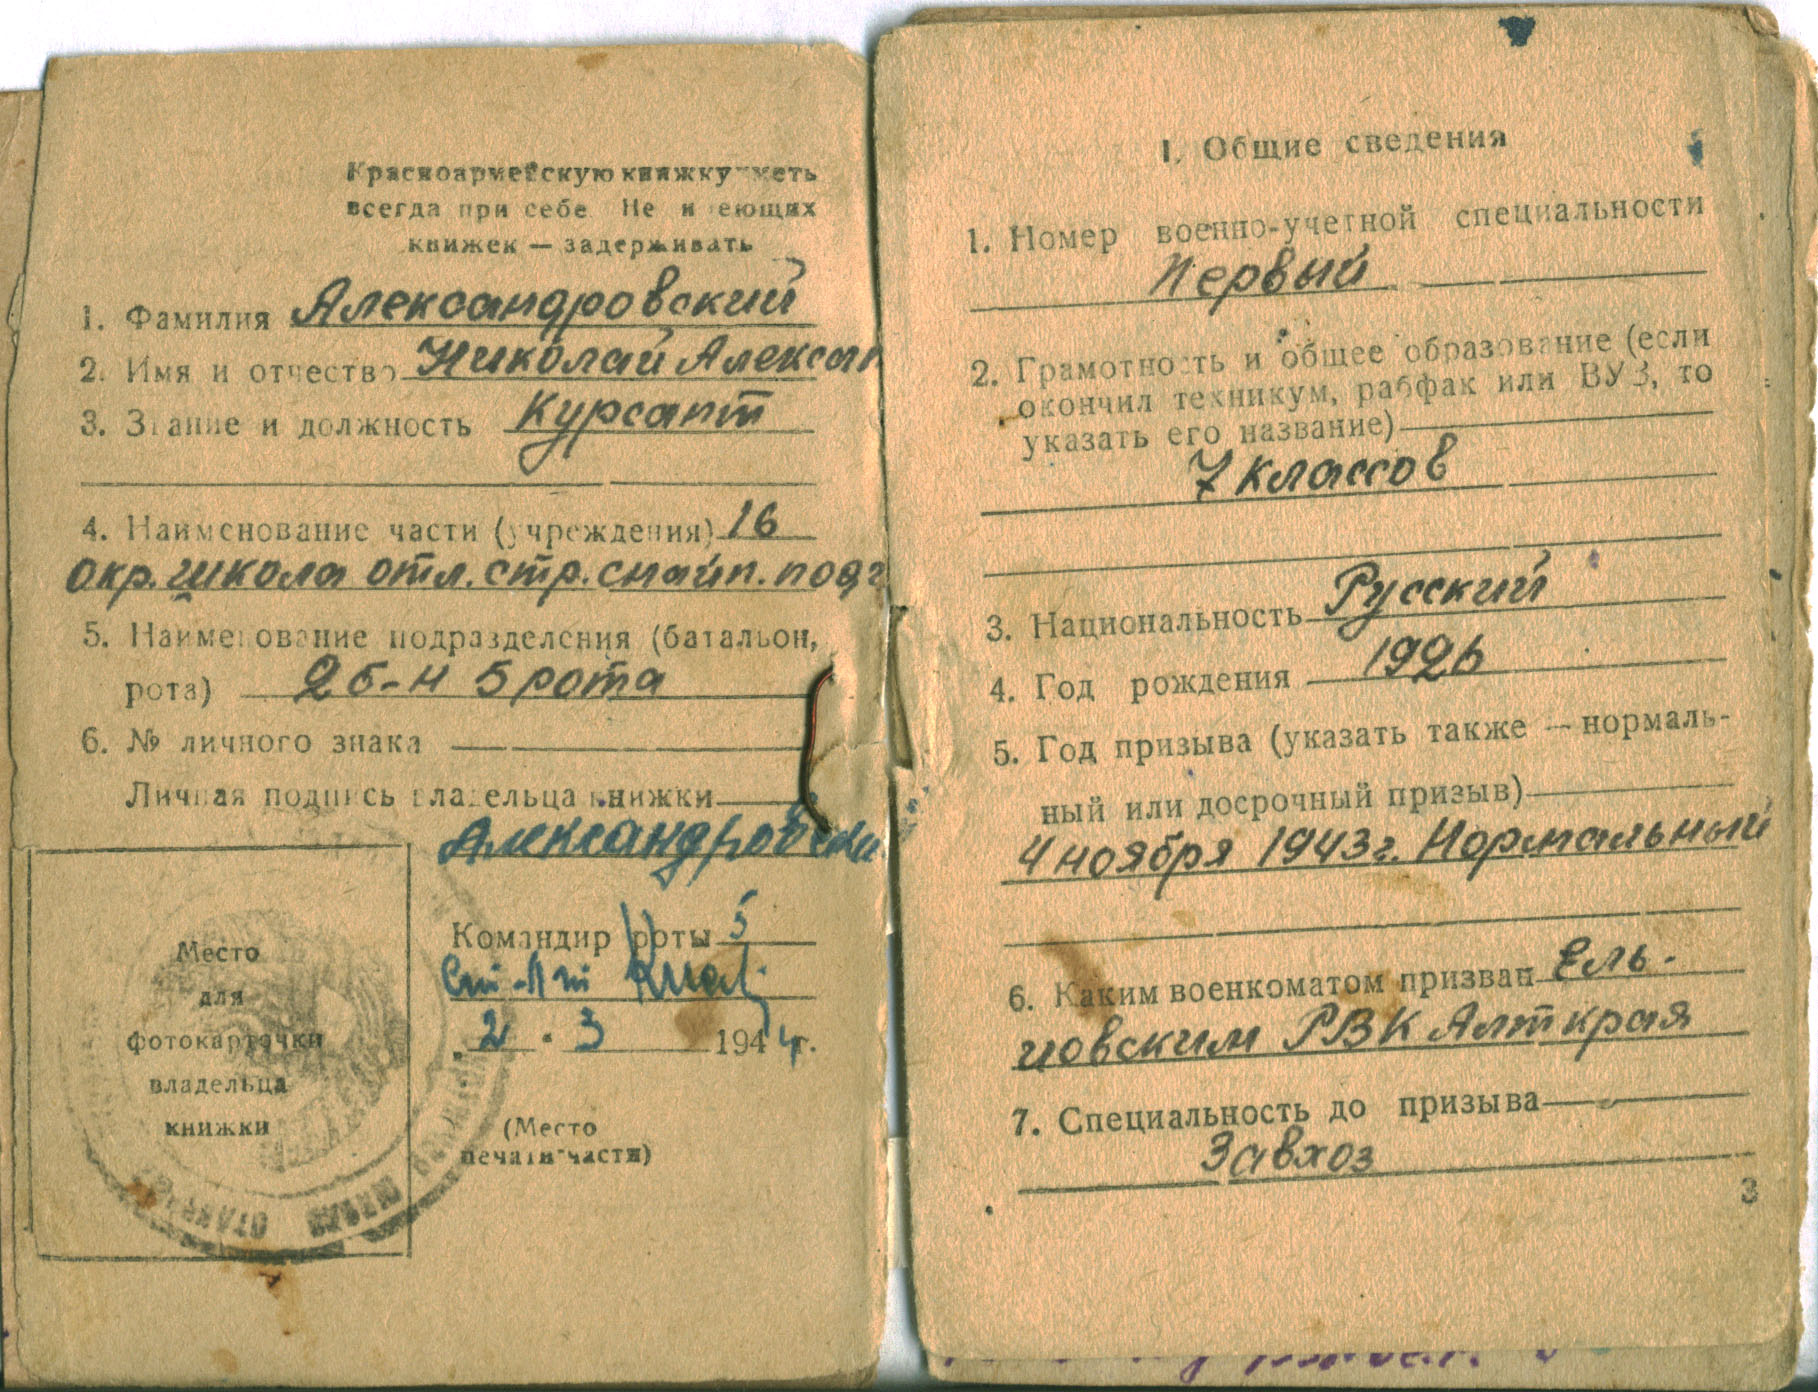 Красноармейскую книжку иметь
всегда при себе. Не имеющих
книжек — задерживать
1. Фамилия Александровский
2. Имя и отчество Николай Алексан
3. Звание и должность Курсант
4. Наименование части (учреждения) 16
окр. школа отл. стр. снайп. подг
5. Наименование подразделения (батальон,
рота) 2 б-н 5 рота
6. № личного знака
Личная подпись владельца книжки
Александровски
Командир роты 5
Ст. Л-т
2 . 3 1944 г.
Место
для
фотокарточки
владельца
книжки
(Место
печати части)
I. Общие сведения
1. Номер военно-учетной специальности
Первый
2. Грамотность и общее образование (если
окончил техникум, рабфак или ВУЗ, то
указать его название)
7 классов
3. Национальность Русский
4. Год рождения 1926
5. Год призыва (указать также — нормаль-
ный или досрочный призыв)
4 ноября 1943 г. Нормальный
6. Каким военкоматом призван Ель-
цовским РВК Алт края
7. Специальность до призыва
Завхоз
3